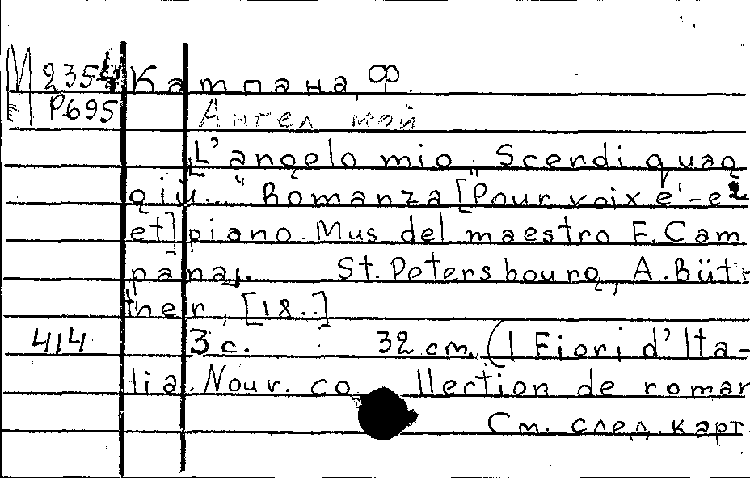 М 2354 Кампана, Ф.
P695 Ангел мой
L'angelo mio „Scendi quag
giu..." Romanza [Pour voix é -e
et] piano. Mus del maestro F. Cam
pana. St. Petersbourg, A. Büt
ner, [18..]
414 3 c. 32 cm. (I Fiori d'Ita-
lia. Nouv. co llection de roman
См. след. карт